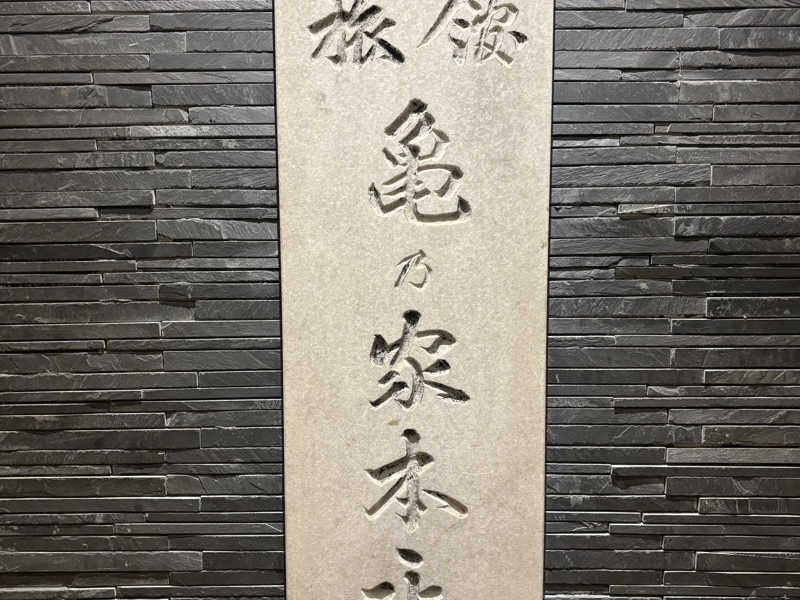 旅館
亀乃家本